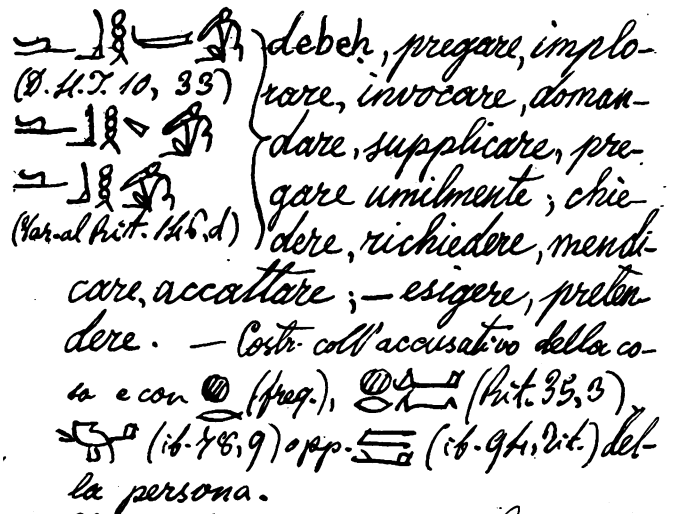 debeḥ, pregare, implo-
(D. H. I. 10, 33) rare, invocare, doman-
dare, supplicare, pre-
gare umilmente; chie-
(Var. al Rit. 146, d) dere, richiedere, mendi-
care, accattare; — esigere, preten-
dere. — Costr. coll'accusativo della co-
sa e con (freq.), (Rit. 35, 3),
(ib. 78, 9) opp. (ib. 94, tit.) del-
la persona.